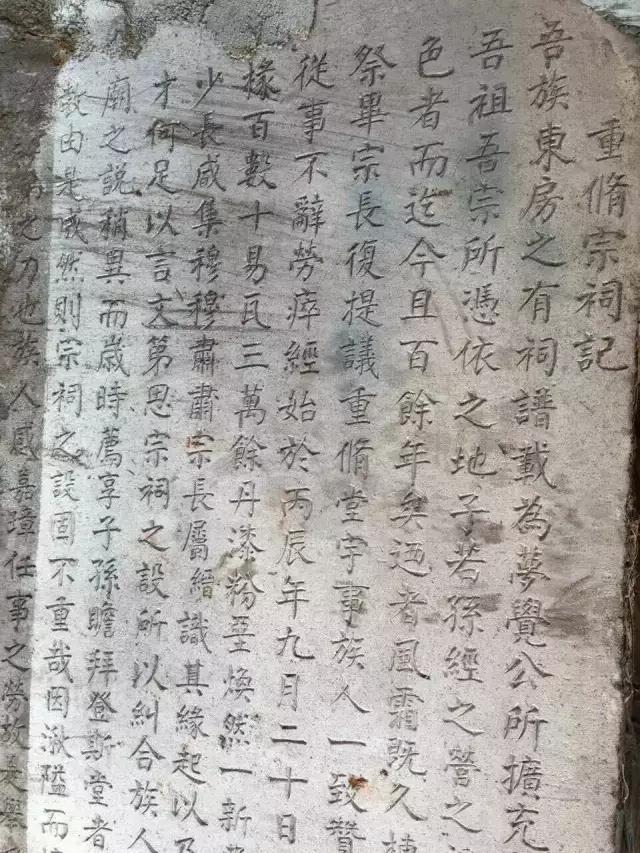 重脩宗祠記
吾族東房之有祠譜載為夢覺公所擴充
吾祖吾宗所憑依之地子若孫經之營之
色者而迄今且百餘年矣迺者風霜既久
祭畢宗長復提議重脩堂宇事族人一致贊
從事不辭勞瘁經始於丙辰年九月二十日
椽百數十易瓦三萬餘丹漆粉堊煥然一新
少長咸集穆穆肅肅宗長屬縉識其緣起以及
才何足以言文第思宗祠之設所以糾合族人
廟之說稍異而歲時薦享子孫瞻拜登斯堂者
教由是成然則宗祠之設固不重哉因湫隘而
之力也族人感嘉璋任事之勞故